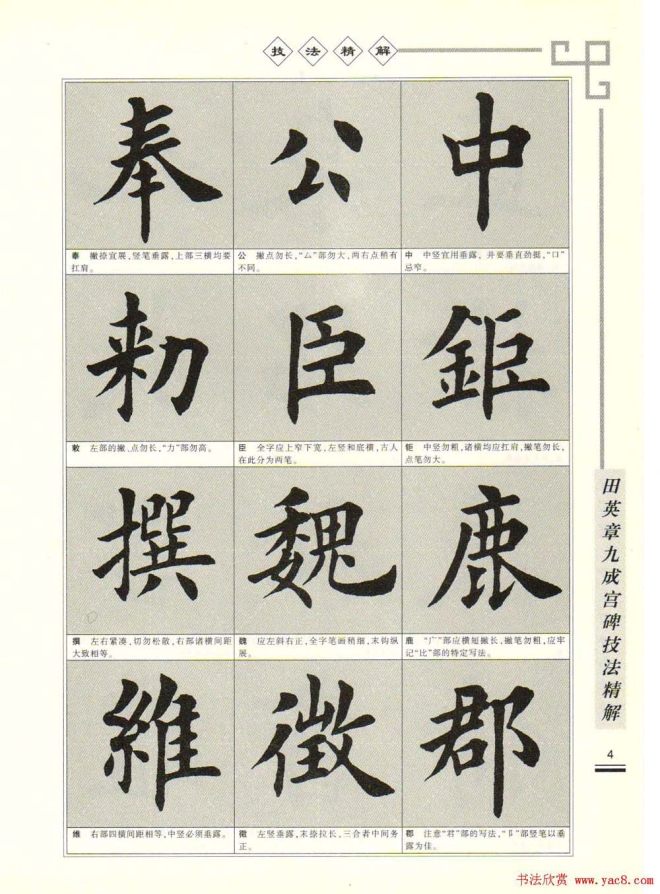 技法精解
奉 公 中
奉 撇捺宜展，竖笔垂露，上部三横均要
扛肩。
公 撇点勿长，“厶”部勿大，两右点稍有
不同。
中 中竖宜用垂露，并要垂直劲挺，“口”
忌窄。
勑 臣 鉅
敕 左部的撇、点勿长，“力”部勿高。
臣 全字应上窄下宽，左竖和底横，古人
在此分为两笔。
钜 中竖勿粗，诸横均应扛肩，撇笔勿长，
点笔勿大。
撰 魏 鹿
撰 左右紧凑，切勿松散，右部诸横间距
大致相等。
魏 应左斜右正，全字笔画稍细，末钩纵
展。
鹿 “广”部应横短撇长，撇笔勿粗，应牢
记“比”部的特定写法。
維 徵 郡
维 右部四横间距相等，中竖必须垂露。
徵 左竖垂露，末捺拉长，三合者中间务
正。
郡 注意“君”部的写法，“阝”部竖笔以垂
露为佳。
田英章九成宫碑技法精解
4
书法欣赏 www.yac8.com